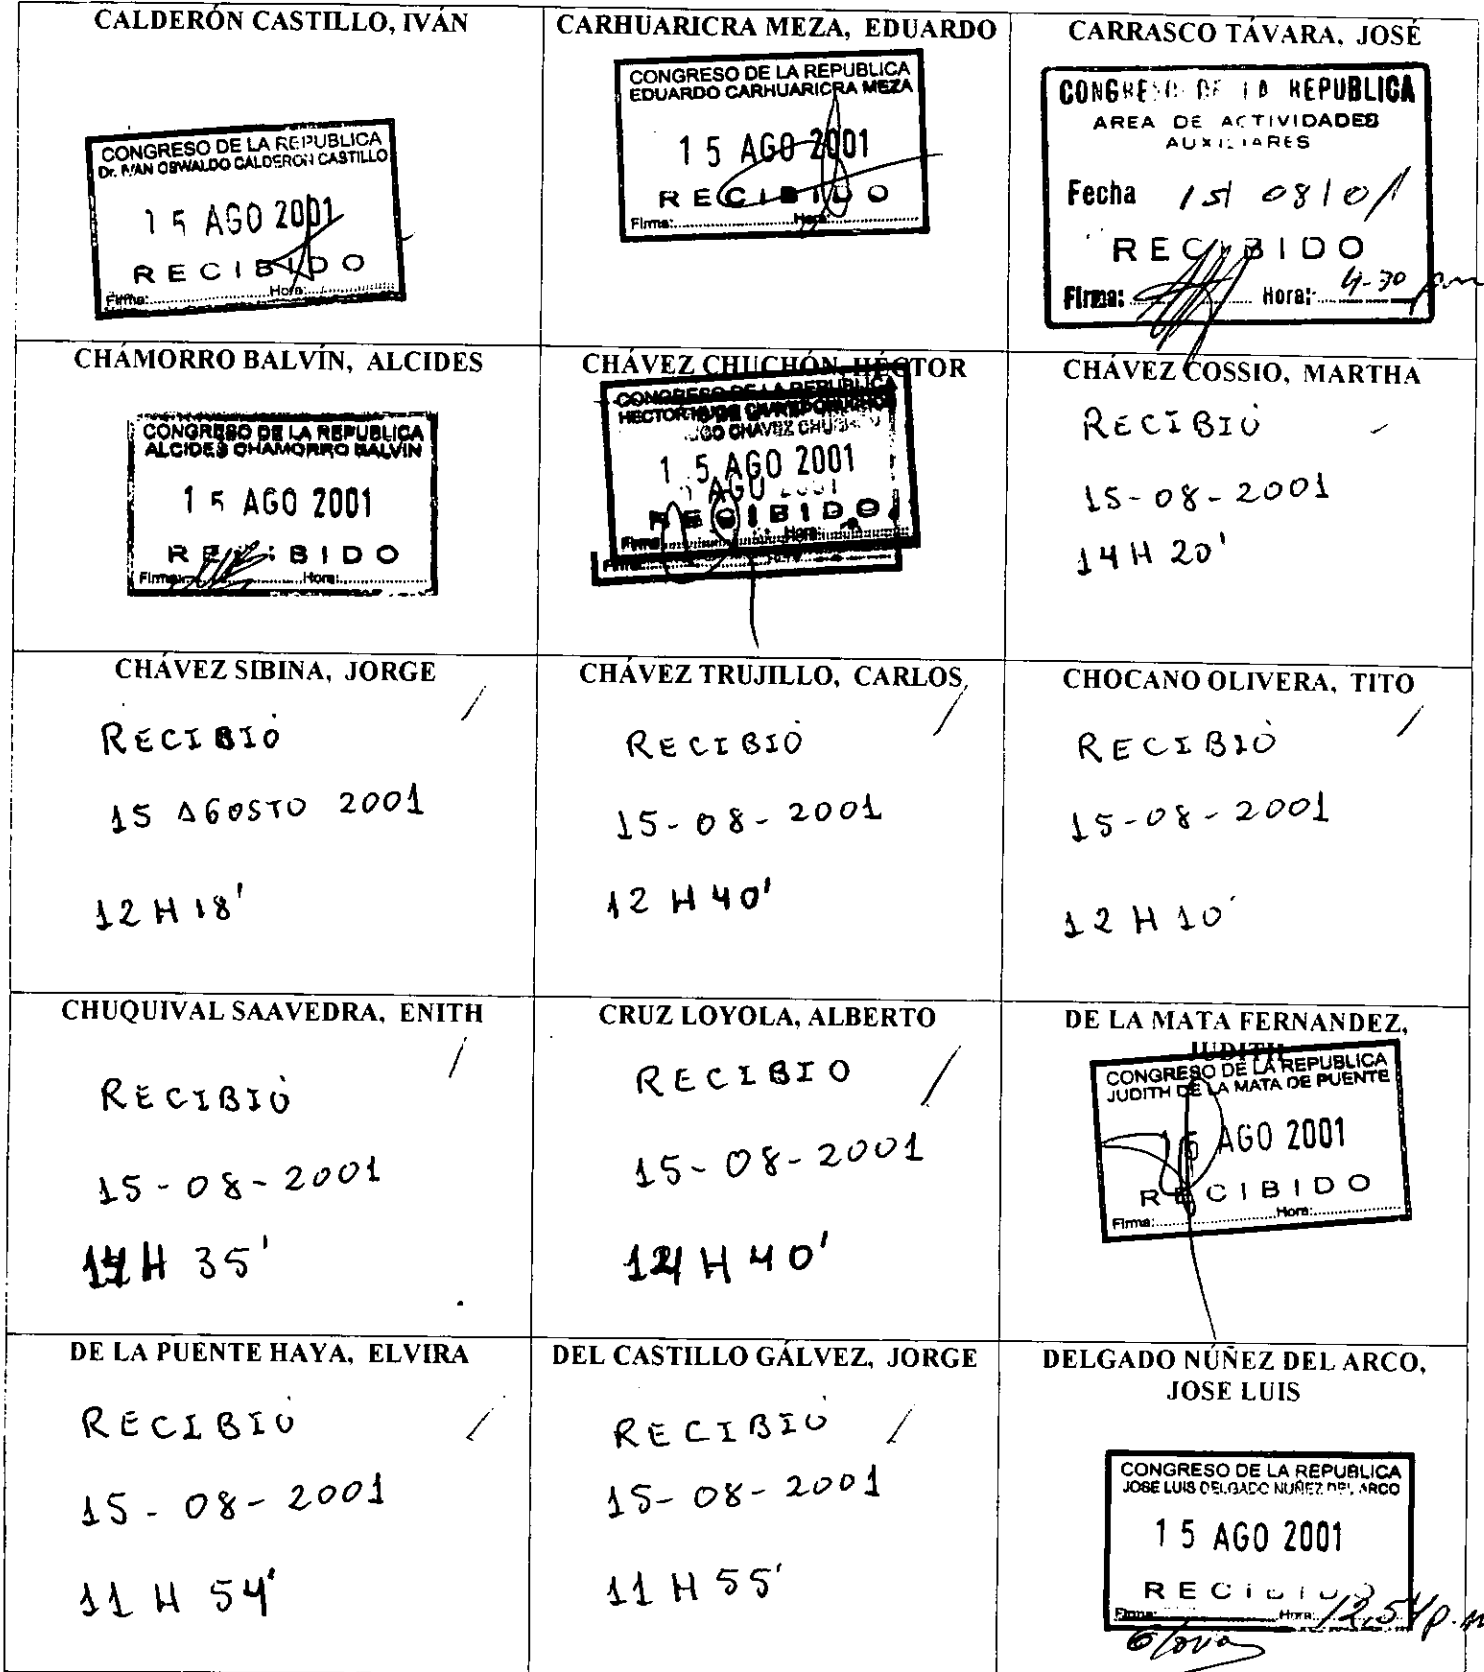 CALDERÓN CASTILLO, IVÁN
CONGRESO DE LA REPUBLICA
Dr. IVAN OSWALDO CALDERON CASTILLO
15 AGO 2001
RECIBIDO
Firma: Hora:
CARHUARICRA MEZA, EDUARDO
CONGRESO DE LA REPUBLICA
EDUARDO CARHUARICRA MEZA
15 AGO 2001
RECIBIDO
Firma: Hora:
CARRASCO TÁVARA, JOSÉ
CONGRESO DE LA REPUBLICA
AREA DE ACTIVIDADES
AUXILIARES
Fecha 15/08/01
RECIBIDO
Firma: Hora: 4-30 pm
CHÁMORRO BALVÍN, ALCIDES
CONGRESO DE LA REPUBLICA
ALCIDES CHAMORRO BALVIN
15 AGO 2001
RECIBIDO
Firma: Hora:
CHÁVEZ CHUCHÓN, HÉCTOR
CONGRESO DE LA REPUBLICA
HECTOR
15 AGO 2001
AGO 2001
RECIBIDO
Firma: Hora:
CHÁVEZ COSSIO, MARTHA
RECIBIÓ
15-08-2001
14 H 20'
CHÁVEZ SIBINA, JORGE
RECIBIÓ
15 AGOSTO 2001
12 H 18'
CHÁVEZ TRUJILLO, CARLOS
RECIBIÓ
15-08-2001
12 H 40'
CHOCANO OLIVERA, TITO
RECIBIÓ
15-08-2001
12 H 10'
CHUQUIVAL SAAVEDRA, ENITH
RECIBIÓ
15-08-2001
H 35'
CRUZ LOYOLA, ALBERTO
RECIBIO
15-08-2001
H 40'
DE LA MATA FERNANDEZ,
JUDITH
CONGRESO DE LA REPUBLICA
JUDITH DE LA MATA DE PUENTE
15 AGO 2001
RECIBIDO
Firma: Hora:
DE LA PUENTE HAYA, ELVIRA
RECIBIÓ
15-08-2001
11 H 54'
DEL CASTILLO GÁLVEZ, JORGE
RECIBIÓ
15-08-2001
11 H 55'
DELGADO NÚÑEZ DEL ARCO,
JOSE LUIS
CONGRESO DE LA REPUBLICA
JOSE LUIS DELGADO NUÑEZ DEL ARCO
15 AGO 2001
RECIBIDO
Firma: Hora: 12,54 p.m